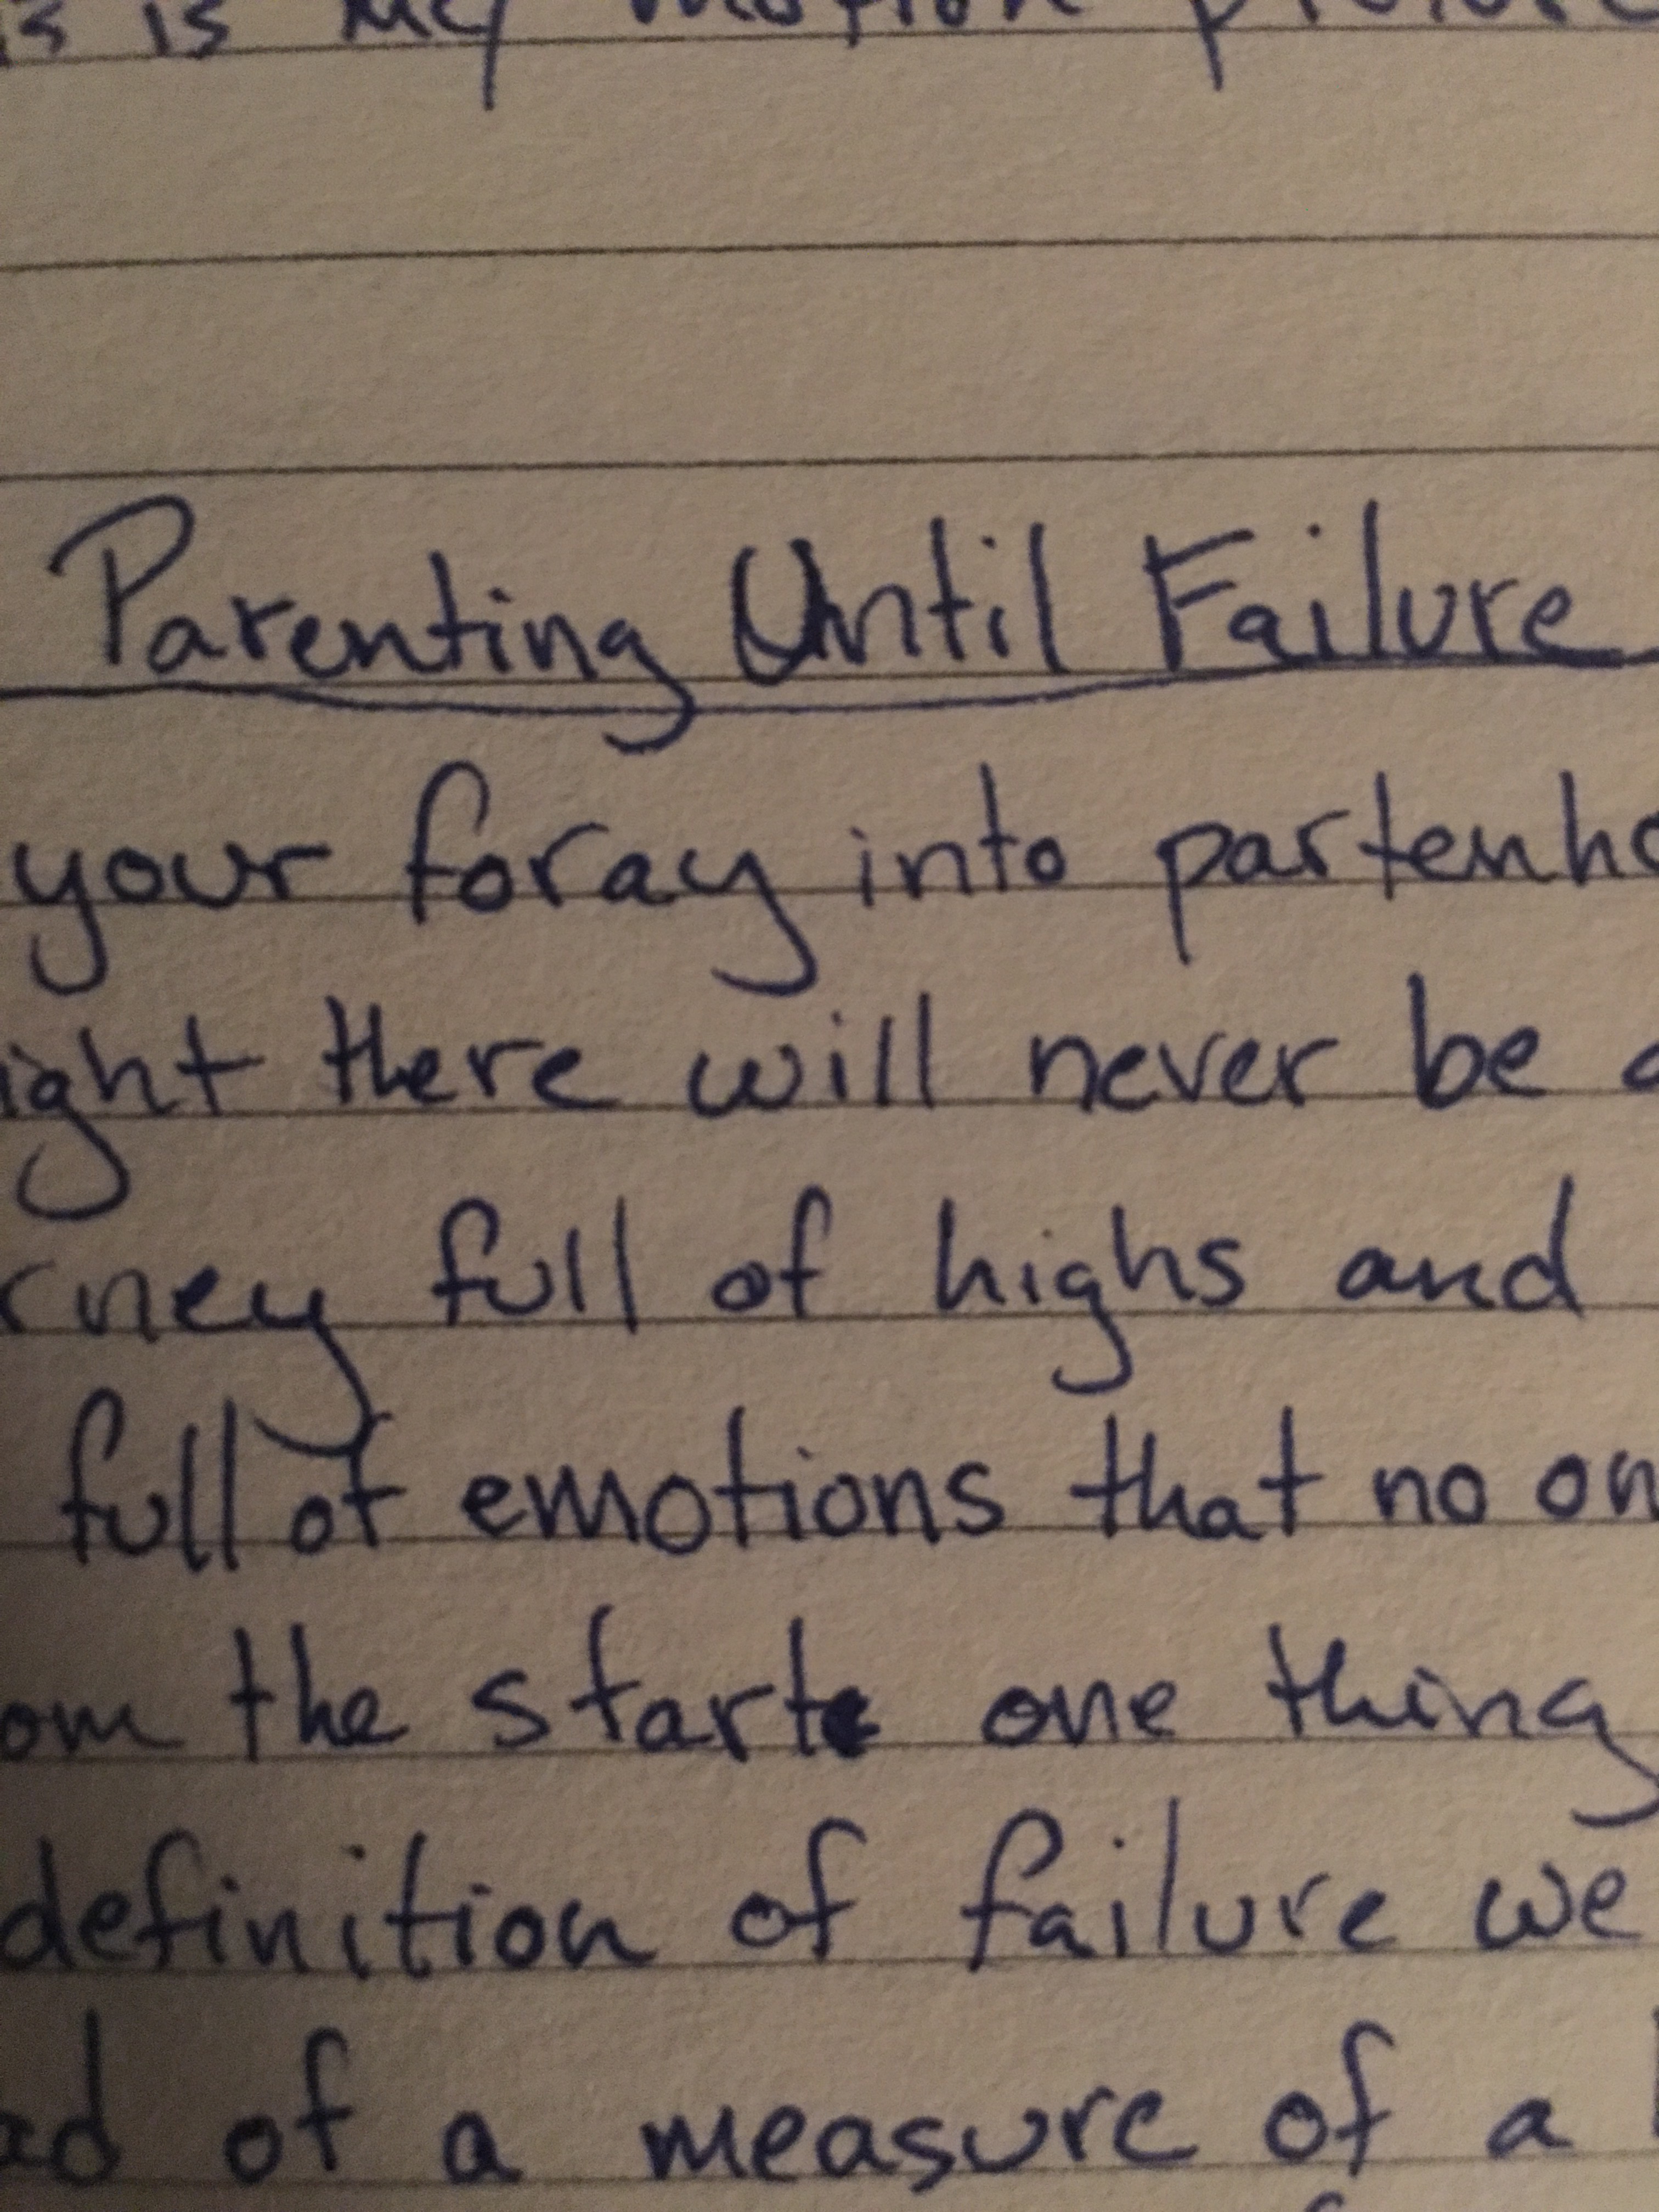 is my motion picture
Parenting Until Failure
your foray into partenho
ight there will never be a
rney full of highs and
full of emotions that no on
om the start one thing
definition of failure we
ad of a measure of a